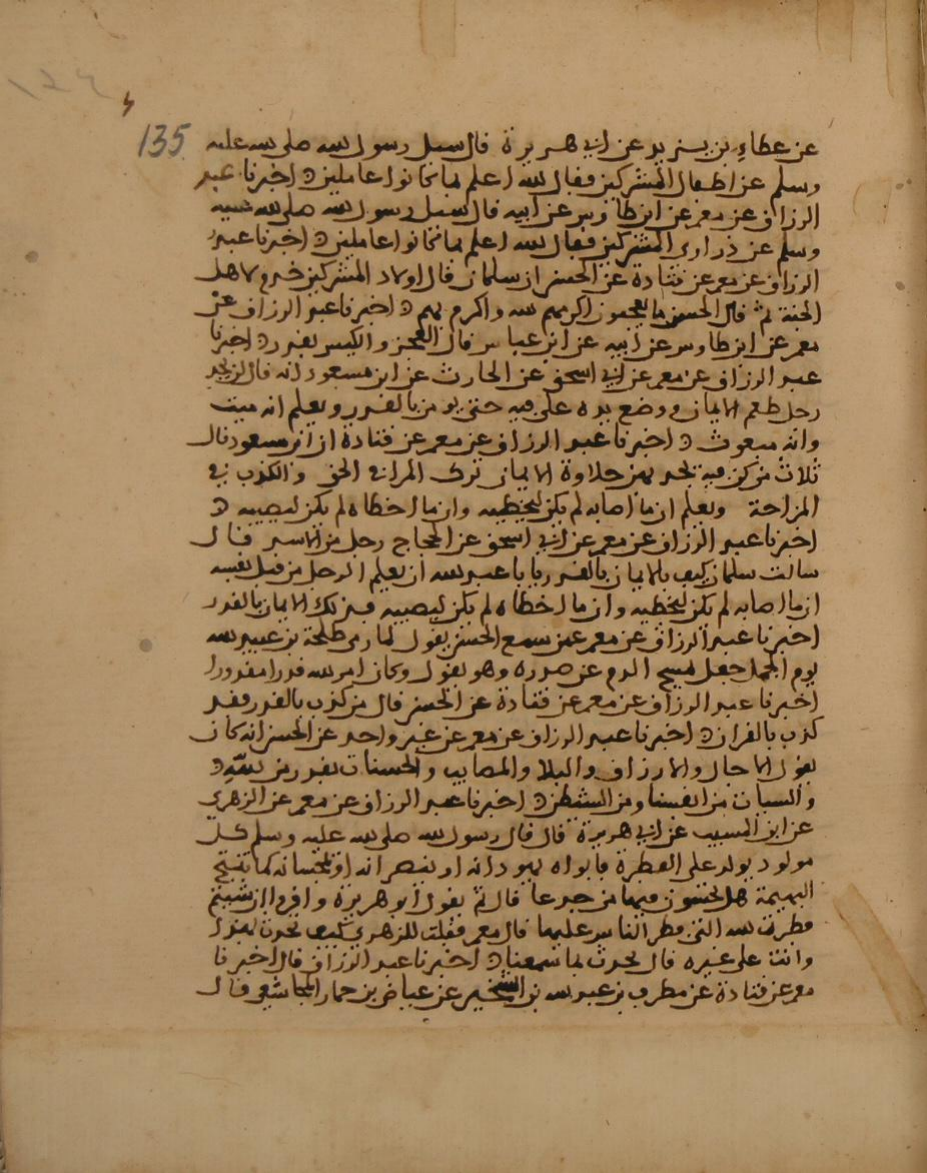 135
عن عطاء بن يزيد عن ابي هريرة قال سيل رسول الله صلى الله عليه
وسلم عن اطفال المشركين فقال الله اعلم بما كانوا عاملين اخبرنا عبد
الرزاق عن معمر عن ابن طاوس عن ابيه قال سيل رسول الله صلى الله عليه
وسلم عن ذراري المشركين فقال الله اعلم بما كانوا عاملين اخبرنا عبد
الرزاق عن معمر عن قتادة عن الحسن ان سلمان قال اولاد المشركين خدم لاهل
الجنة ثم قال الحسن ما تعجبون اكرمهم الله واكرم بهم اخبرنا عبد الرزاق عن
معمر عن ابن طاوس عن ابيه عن ابن عباس قال العجز والكيس بقدر اخبرنا
عبد الرزاق عن معمر عن ابي اسحق عن الحارث عن ابن مسعود انه قال لن يجد
رجل طعم الايمان ووضع يده على فيه حتى يومن بالقدر ويعلم انه ميت
وانه مبعوث اخبرنا عبد الرزاق عن معمر عن قتادة ان ابن مسعود قال
ثلاث من كن فيه يجد بهن حلاوة الايمان ترك المرا في الحق والكذب في
المزاحة ويعلم ان ما اصابه لم يكن ليخطيه وان ما اخطاه لم يكن ليصيبه
اخبرنا عبد الرزاق عن معمر عن ابي اسحق عن ابي الحجاج رجل من الاسد قال
سالت سلمان كيف الايمان بالقدر يابا عبد الله ان يعلم الرجل من قبل نفسه
ان ما اصابه لم يكن ليخطيه وان ما اخطاه لم يكن ليصيبه فذلك الايمان بالقدر
اخبرنا عبد الرزاق عن معمر عمن سمع الحسن يقول لما رمي طلحة بن عبيد الله
يوم الجمل جعل يمسح الدم عن صدره وهو يقول وكان امر الله قدرا مقدورا
اخبرنا عبد الرزاق عن معمر عن قتادة عن الحسن قال من كذب بالقدر فقد
كذب بالقران اخبرنا عبد الرزاق عن معمر عن غير واحد عن الحسن انه كان
يقول الاجال والارزاق والبلا والمصايب والحسنات بقدر من الله
والسيات من انفسنا ومن الشيطن اخبرنا عبد الرزاق عن معمر عن الزهري
عن ابن المسيب عن ابي هريرة قال قال رسول الله صلى الله عليه وسلم كل
مولود يولد على الفطرة فابواه يهودانه او ينصرانه او يمجسانه كما تنتج
البهيمة هل تحسون فيها من جدعا قال ثم يقول ابو هريرة واقروا ان شيتم
فطرت الله التي فطر الناس عليها قال معمر فقلت للزهري كيف تحدث بهذا
وانت على غيره قال نحدث بما سمعنا اخبرنا عبد الرزاق قال اخبرنا
معمر عن قتادة عن مطرف بن عبد الله بن الشخير عن عياض بن حمار المجاشعي قال